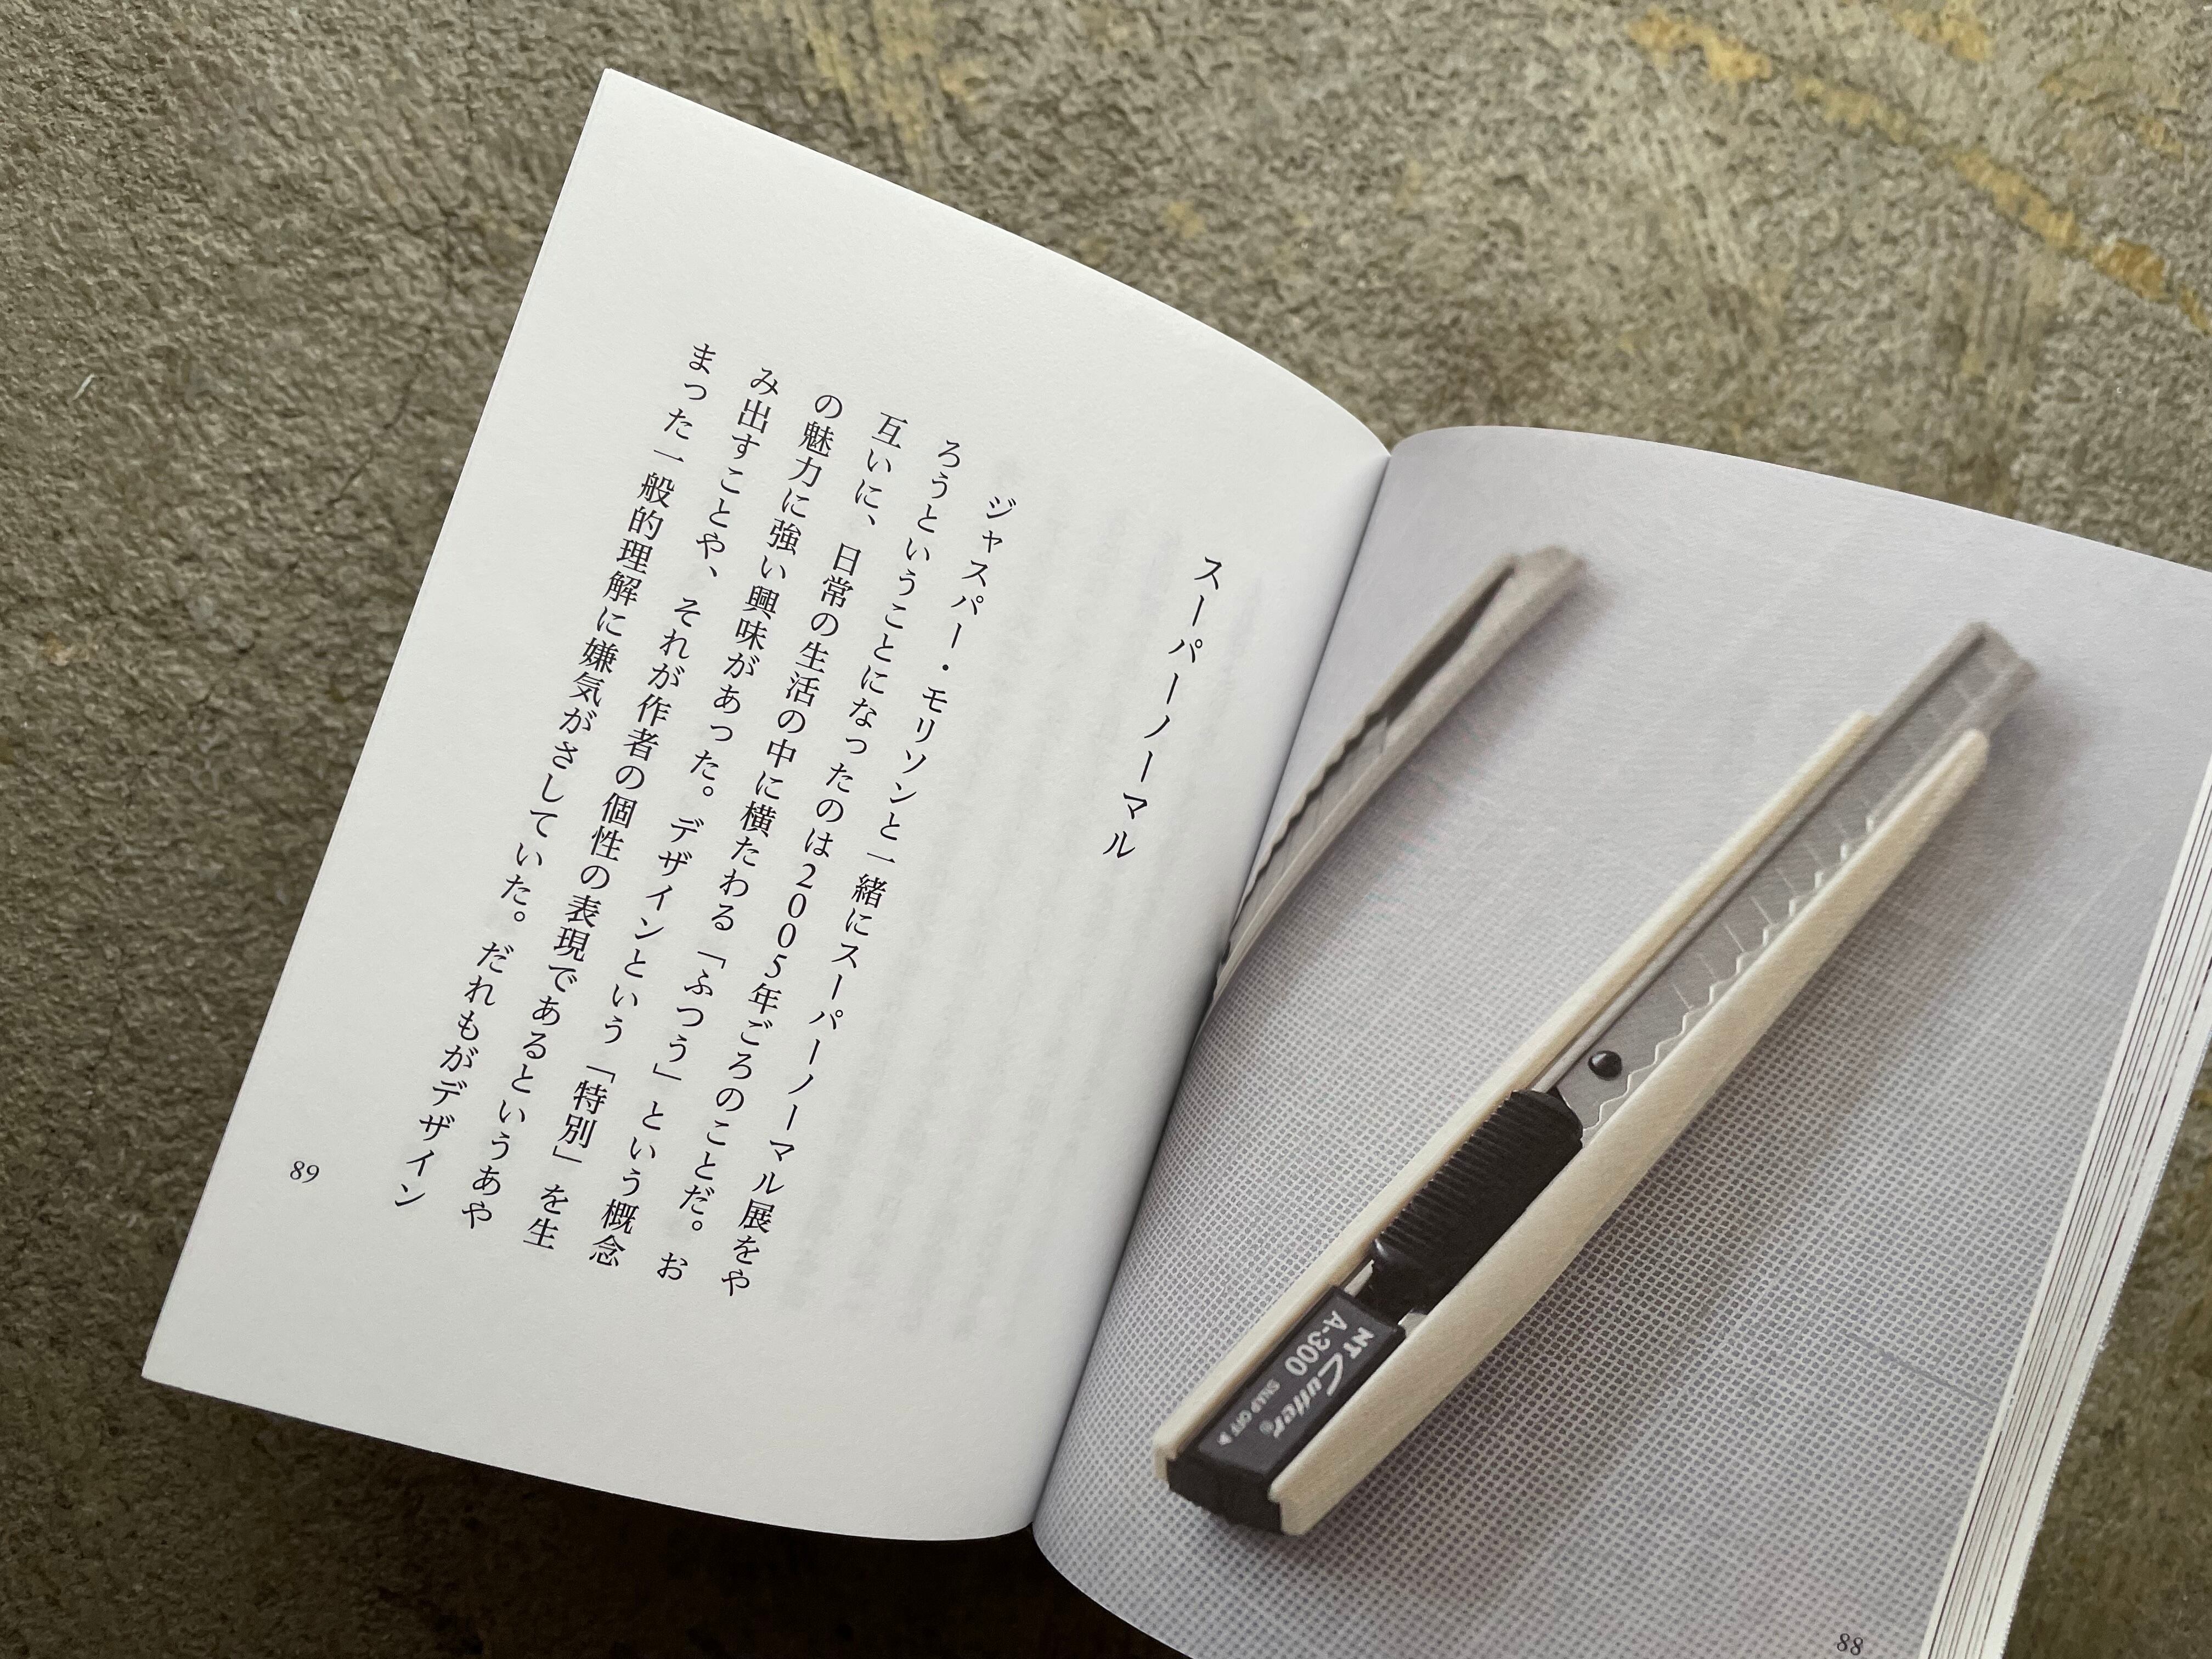 スーパーノーマル
ジャスパー・モリソンと一緒にスーパーノーマル展をや
ろうということになったのは2005年ごろのことだ。お
互いに、日常の生活の中に横たわる「ふつう」という概念
の魅力に強い興味があった。デザインという「特別」を生
み出すことや、それが作者の個性の表現であるというあや
まった一般的理解に嫌気がさしていた。だれもがデザイン
89
NT Cutter®
A-300 SNAP OFF ▶
88